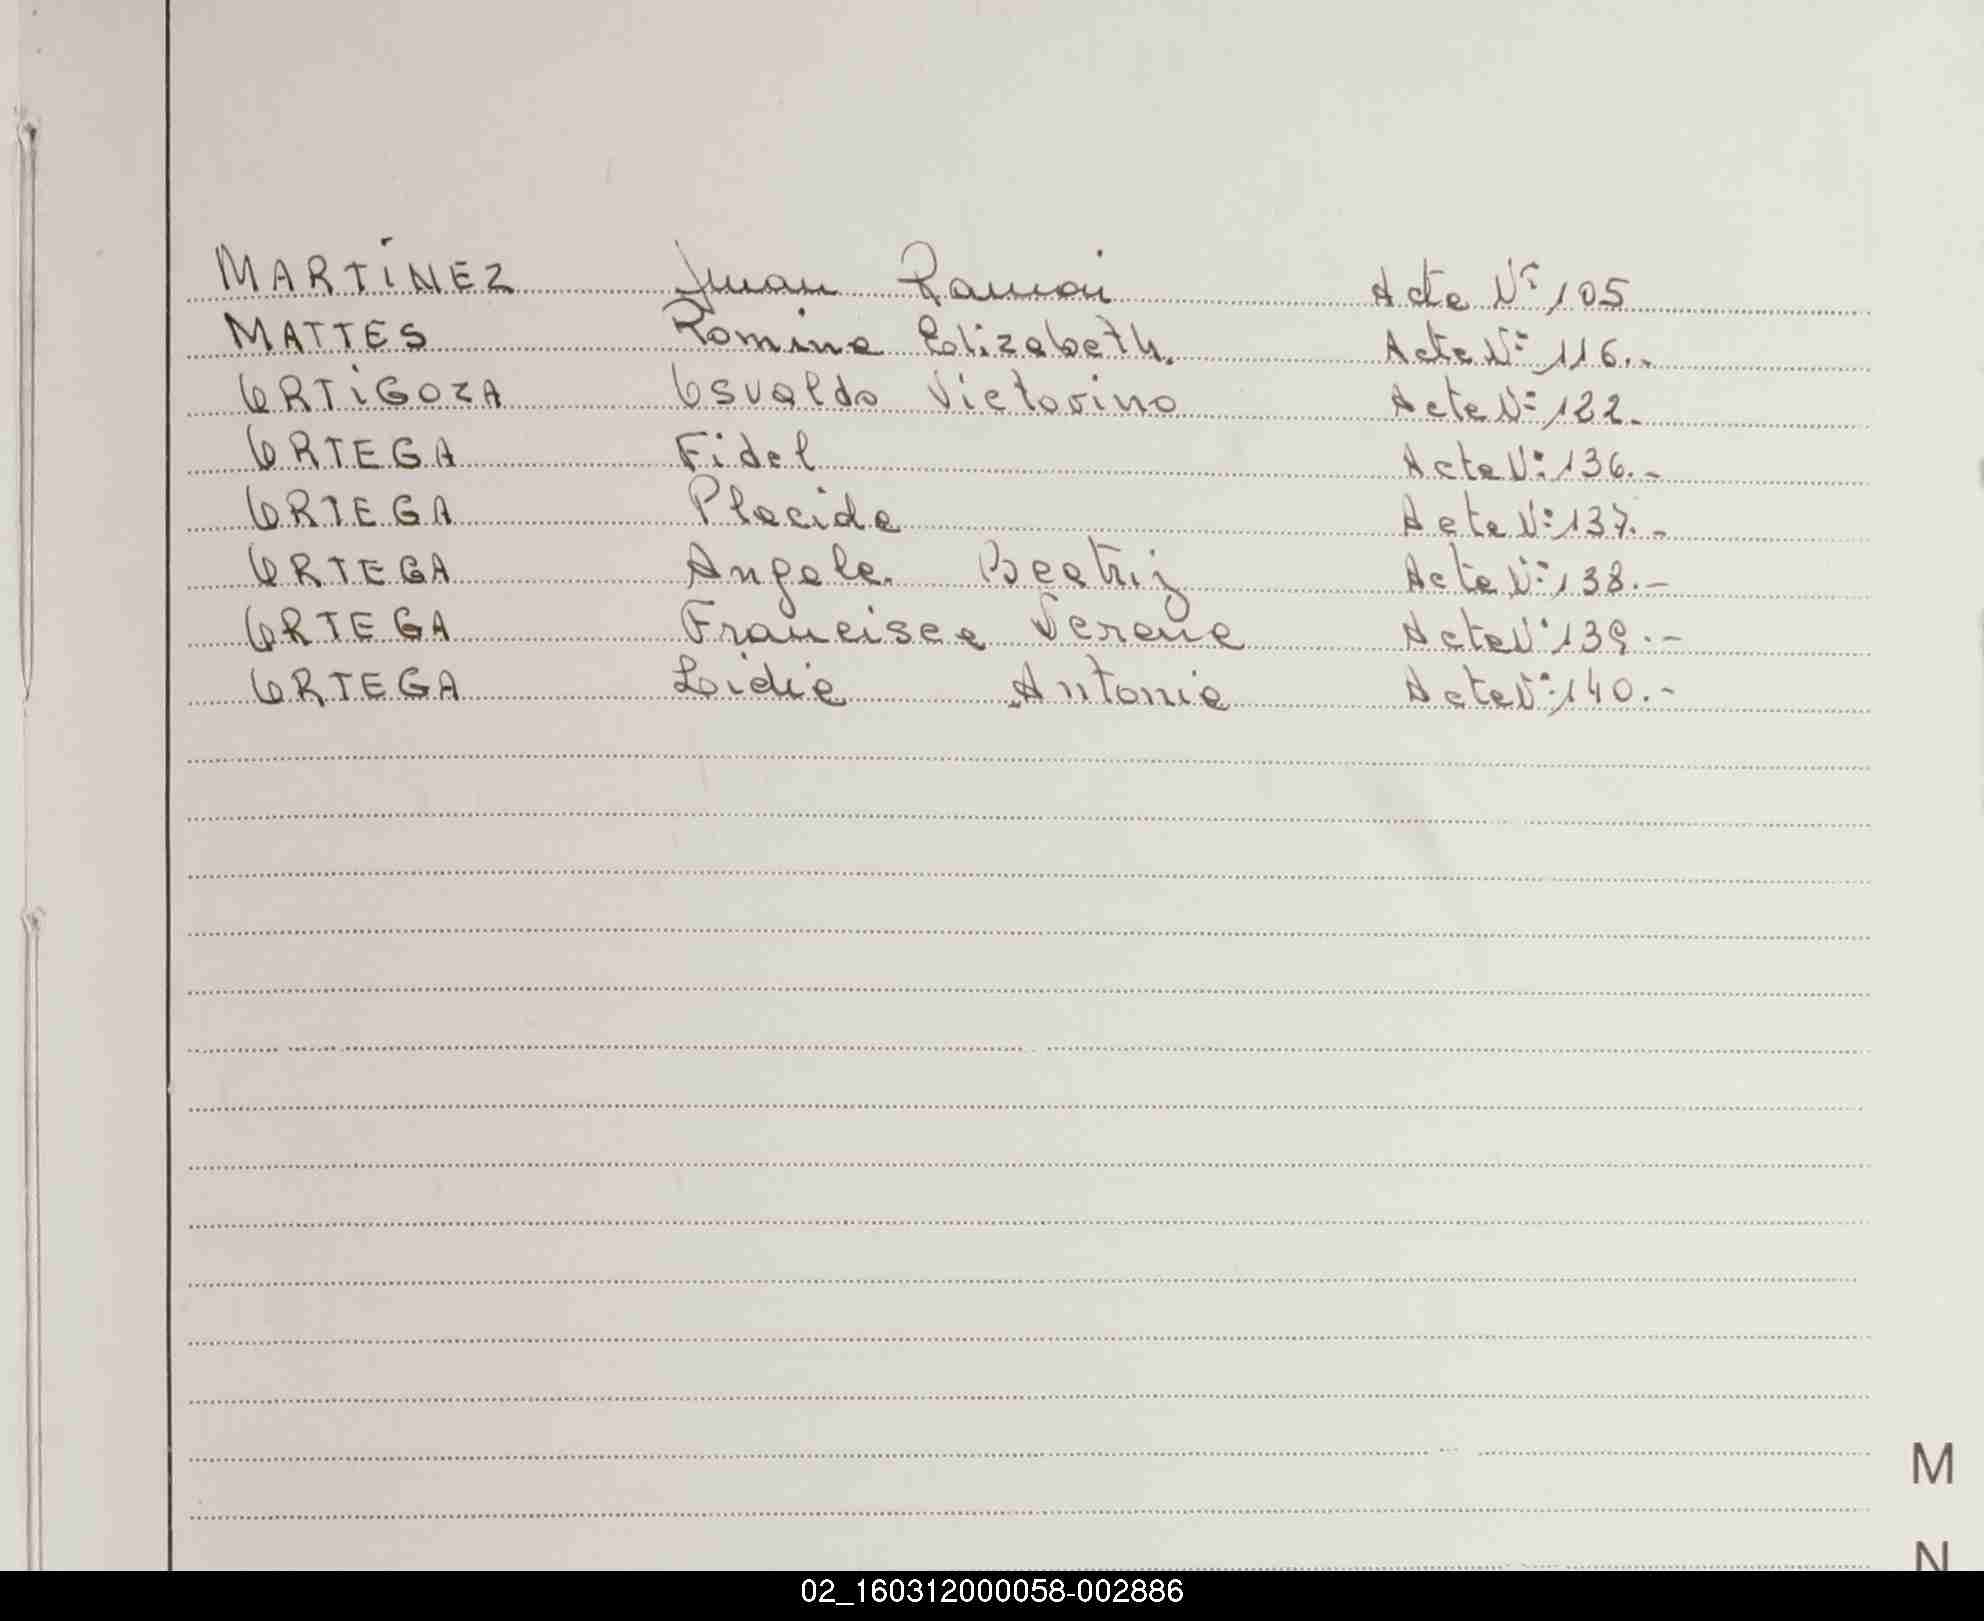 MARTÍNEZ Juan Ramón Acta Nº 105
MATTES Romina Elizabeth. Acta Nº 116.-
ORTIGOZA Osvaldo Victorino Acta Nº 122.-
ORTEGA Fidel Acta Nº 136.-
ORTEGA Placida Acta Nº 137.-
ORTEGA Angela Beatriz Acta Nº 138.-
ORTEGA Francisca Serena Acta Nº 139.-
ORTEGA Lidia Antonia Acta Nº 140.-
M
N
02_160312000058-002886